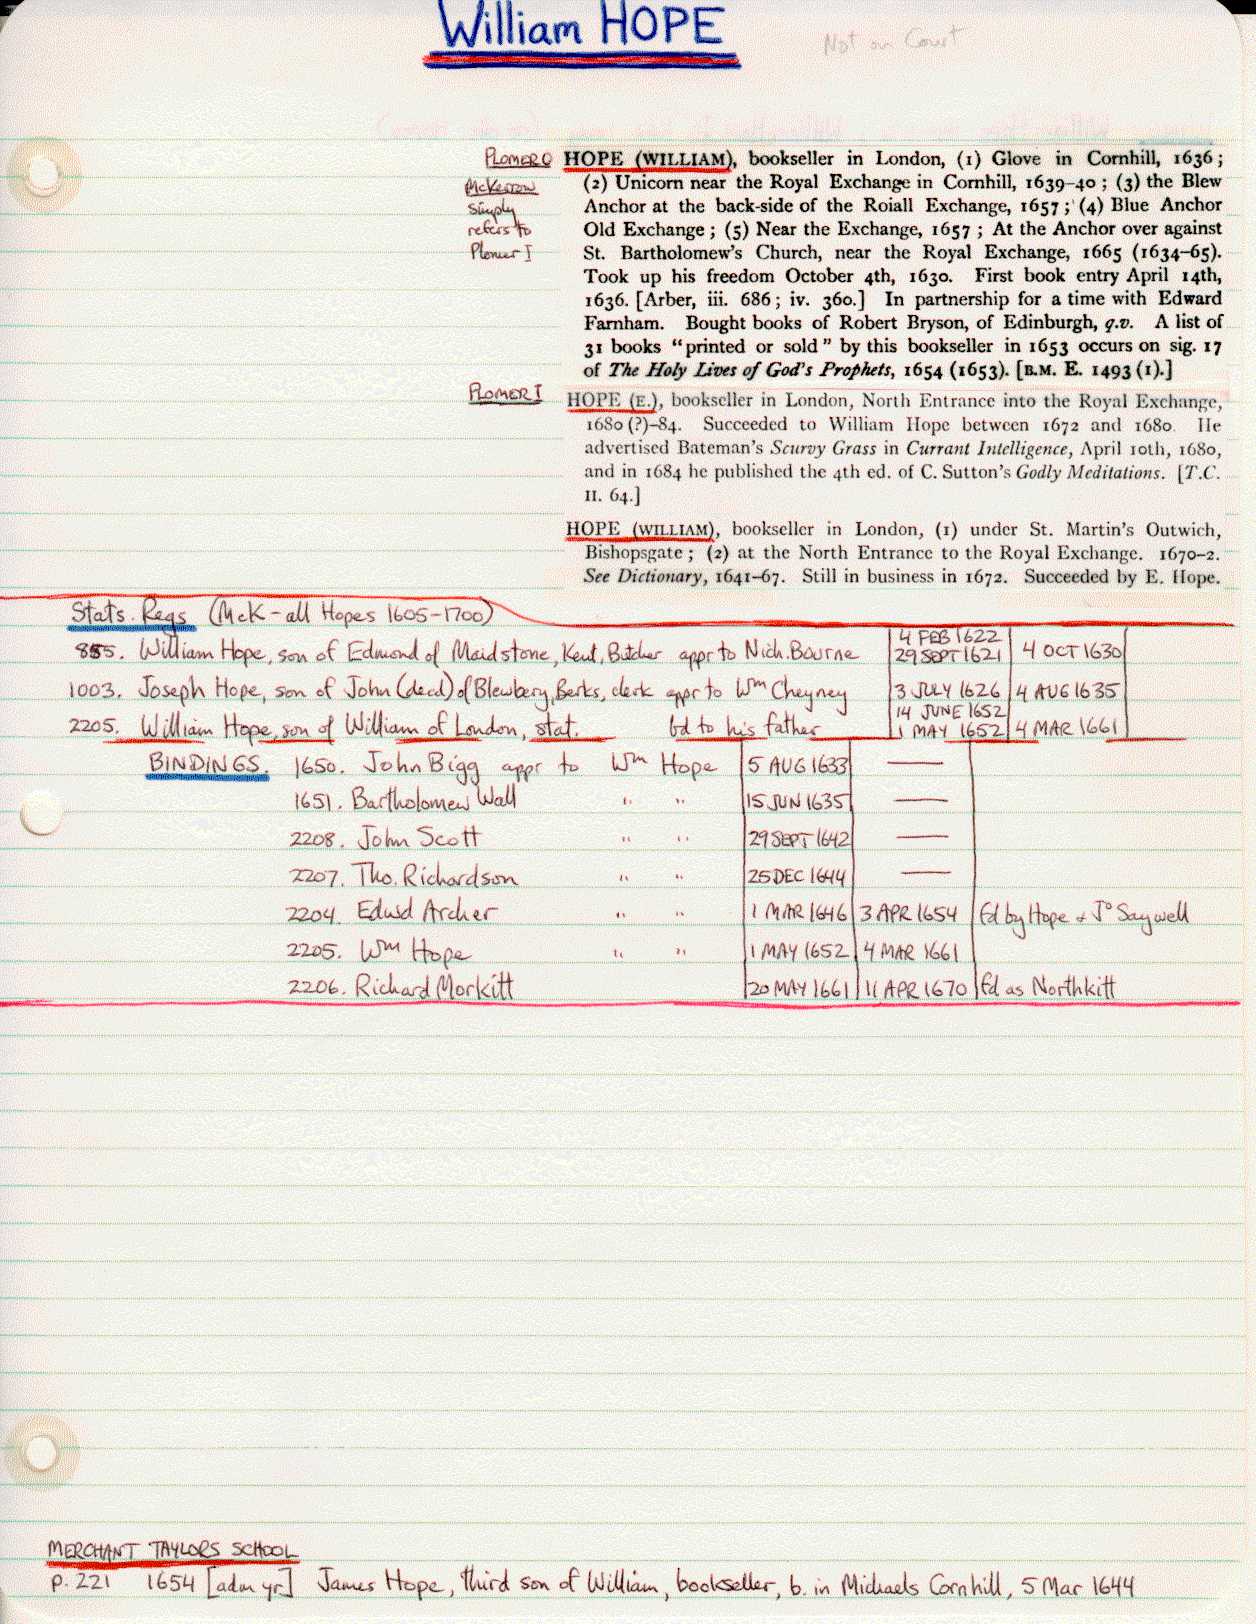 William HOPE
Not on Court
PLOMER 0
McKerrow
simply
refers to
Plomer I
HOPE (WILLIAM), bookseller in London, (1) Glove in Cornhill, 1636;
(2) Unicorn near the Royal Exchange in Cornhill, 1639-40; (3) the Blew
Anchor at the back-side of the Roiall Exchange, 1657; (4) Blue Anchor
Old Exchange; (5) Near the Exchange, 1657; At the Anchor over against
St. Bartholomew's Church, near the Royal Exchange, 1665 (1634-65).
Took up his freedom October 4th, 1630. First book entry April 14th,
1636. [Arber, iii. 686; iv. 360.] In partnership for a time with Edward
Farnham. Bought books of Robert Bryson, of Edinburgh, q.v. A list of
31 books "printed or sold" by this bookseller in 1653 occurs on sig. 17
of The Holy Lives of God's Prophets, 1654 (1653). [B.M. E. 1493 (1).]
PLOMER I
HOPE (E.), bookseller in London, North Entrance into the Royal Exchange,
1680 (?)-84. Succeeded to William Hope between 1672 and 1680. He
advertised Bateman's Scurvy Grass in Currant Intelligence, April 10th, 1680,
and in 1684 he published the 4th ed. of C. Sutton's Godly Meditations. [T.C.
II. 64.]
HOPE (WILLIAM), bookseller in London, (1) under St. Martin's Outwich,
Bishopsgate; (2) at the North Entrance to the Royal Exchange. 1670-2.
See Dictionary, 1641-67. Still in business in 1672. Succeeded by E. Hope.
Stats. Regs (McK - all Hopes 1605-1700)
855. William Hope, son of Edmond of Maidstone, Kent, Butcher appr to Nich. Bourne 4 FEB 1622 29 SEPT 1621 4 OCT 1630
1003. Joseph Hope, son of John (decd) of Blewbery, Berks, clerk appr to Wm Cheyney 3 JULY 1626 4 AUG 1635
2205. William Hope, son of William of London, stat. bd to his father 14 JUNE 1652 1 MAY 1652 4 MAR 1661
BINDINGS. 1650. John Bigg appr to Wm Hope 5 AUG 1633 —
1651. Bartholomew Wall " " 15 JUN 1635 —
2208. John Scott " " 29 SEPT 1642 —
2207. Tho. Richardson " " 25 DEC 1644 —
2204. Edwd Archer " " 1 MAR 1646 3 APR 1654 fd by Hope + Jo Saywell
2205. Wm Hope " " 1 MAY 1652 4 MAR 1661
2206. Richard Morkitt 20 MAY 1661 11 APR 1670 fd as Northkitt
MERCHANT TAYLORS SCHOOL
p. 221 1654 [adm yr] James Hope, third son of William, bookseller, b. in Michaels Cornhill, 5 Mar 1644